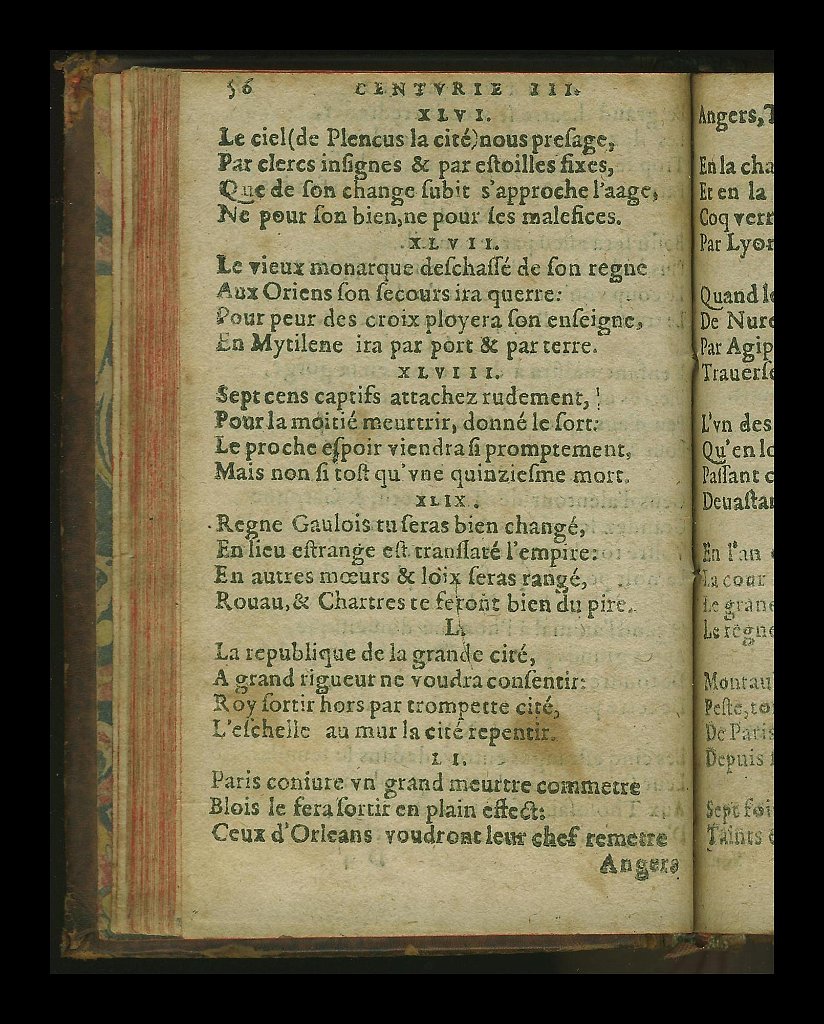 56 CENTVRIE III.
XLVI.
Le ciel (de Plencus la cité) nous preſage,
Par clercs inſignes & par eſtoilles fixes,
Que de ſon change ſubit s'approche l'aage,
Ne pour ſon bien, ne pour ſes malefices.
XLVII.
Le vieux monarque deſchaſſé de ſon regne
Aux Oriens ſon ſecours ira querre:
Pour peur des croix ployera ſon enſeigne,
En Mytilene ira par port & par terre.
XLVIII.
Sept cens captifs attachez rudement,
Pour la moitié meurtrir, donné le ſort:
Le proche eſpoir viendra ſi promptement,
Mais non ſi toſt qu'vne quinzieſme mort.
XLIX.
Regne Gaulois tu ſeras bien changé,
En lieu eſtrange eſt tranſlaté l'empire:
En autres mœurs & loix ſeras rangé,
Rouau, & Chartres te feront bien du pire.
L.
La republique de la grande cité,
A grand rigueur ne voudra conſentir:
Roy ſortir hors par trompette cité,
L'eſchelle au mur la cité repentir.
LI.
Paris coniure vn grand meurtre commetre
Blois le fera ſortir en plain effect:
Ceux d'Orleans voudront leur chef remetre
Angers
Angers,
En la cha
Et en la
Coq verr
Par Lyon
Quand le
De Nure
Par Agip
Trauerſe
L'vn des
Qu'en lo
Paſſant c
Deuaſtan
En l'an
La cour
Le grand
Le regne
Montau
Peſte, to
De Paris
Depuis
Sept foi
Taints